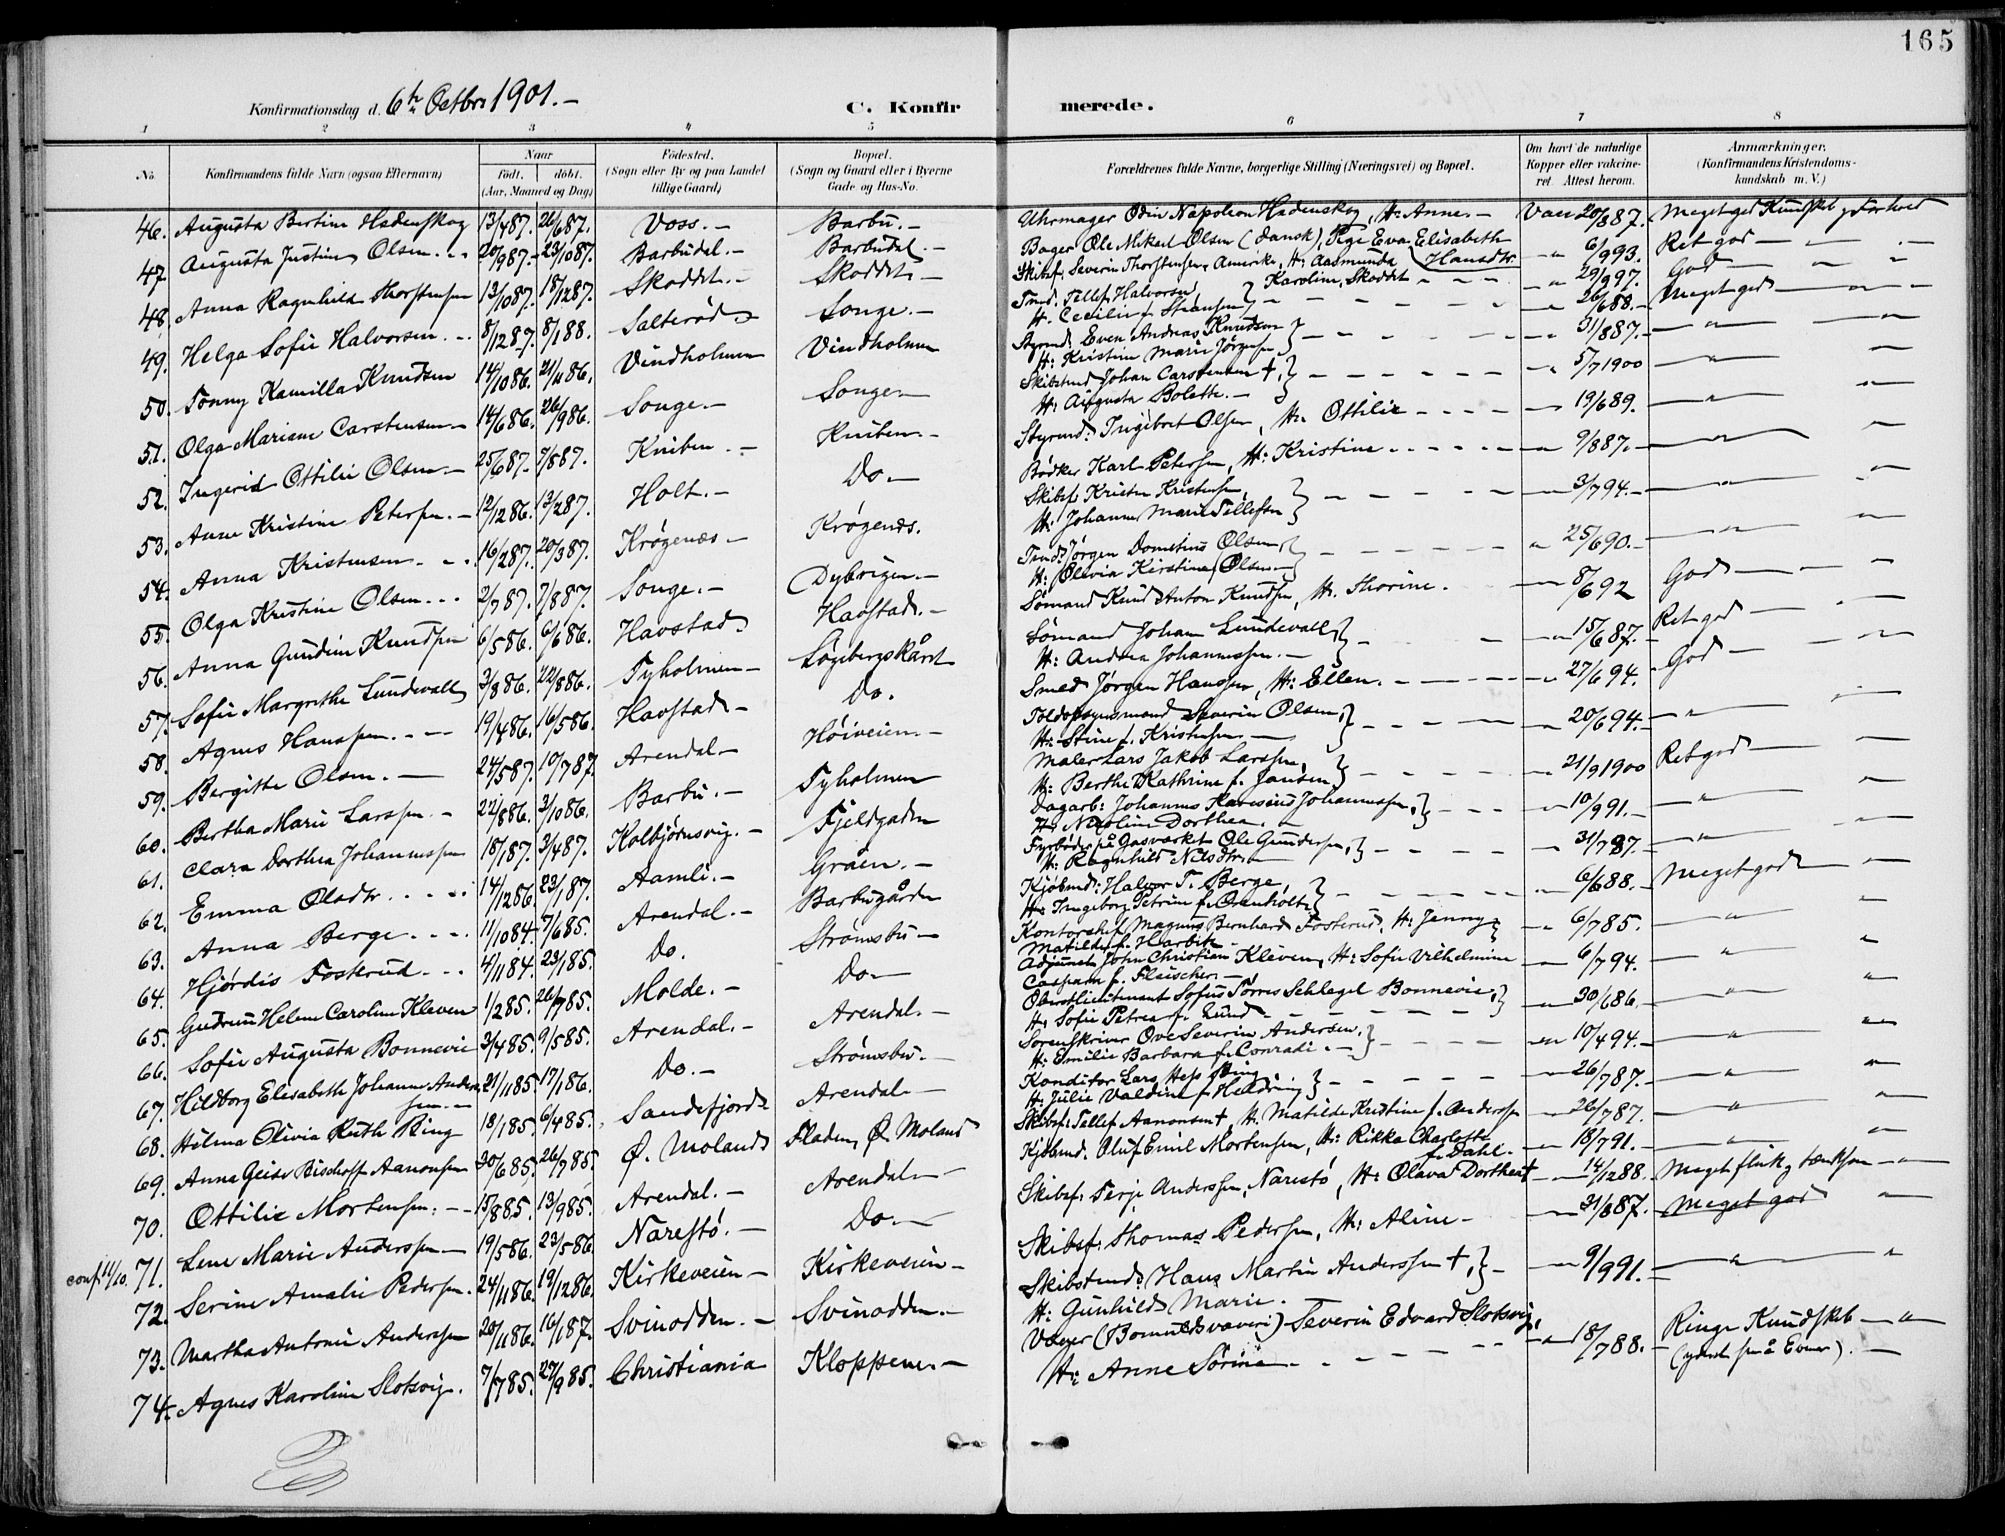 165
Konfirmationsdag d. 6te Octbr 1901. —
C. Konfirmerede.
1 2 3 4 5 6 7 8
No. Konfirmandens fulde Navn (ogsaa Efternavn) Naar født. døbt. (Aar, Maaned og Dag) Fødested. (Sogn eller By og paa Landet tillige Gaard) Bopæl. (Sogn og Gaard eller i Byerne Gade og Hus-No. Forældrenes fulde Navne, borgerlige Stilling (Næringsvei) og Bopæl. Om havt de naturlige Kopper eller vakcineret. Attest herom. Anmærkninger. (Konfirmandens Kristendomskundskab m. V.)
46. Augusta Bertine Hedenskog 13/487. 26/687. Voss. — Barbu. — Uhrmager Odin Napoleon Hedenskog, H: Anne. — Vac. 20/887. Meget god Kundskab og Forhold
47. Augusta Justine Olsen. 20/987. 23/1087. Barbudal. — Barbudal. — Bager Ole Mikael Olsen (dansk) Pige Eva Elisabeth Hansdtr. 6/993. Ret god
48. Anna Ragnhild Thorstensen 13/1087. 18/1287. Skoddet. — Skoddet — Skibsf. Severin Thorstensen, Amerika, H: Aasmunda Karoline, Skoddet 29/997. God
49. Helga Sofie Halvorsen. 8/1287. 8/188. Salterød Songe. — Tmd. Tellef Halvorsen H. Cecilie 26/688. Meget god
50. Tonny Kamilla Knudsen 14/1086. 21/1186. Vindholmen Vindholmen Styrmd: Even Andreas Knudsen H: Kristine Marie Jörgensen 31/887.
51. Olga Mariane Carstensen 14/686. 26/986. Songe. — Songe — Skibstmd Johan Carstensen †, H: Augusta Bolette. — 5/71900
52. Ingerid Ottilie Olsen. — 25/687. 7/887. Kniben. — Kniben. — Styrmd: Ingebret Olsen, H: Ottilie 19/689.
53. Anne Kristine Petersen. — 12/1286. 13/287. Holt. — Do. — Bødker Karl Petersen, H: Kristine 9/887.
54. Anna Kristensen. 16/287. 20/387. Krøgenæs — Krøgenæs. Skibsf: Krister Kristensen, H: Johanne Marie Tellefsen 3/794.
55. Olga Kristine Olsen. 2/787. 7/887. Songe. — Dybvigen. — Tmd: Jørgen Dometius Olsen, H: Olevia Kirstine Olsen 25/690.
56. Anna Gundine Knudsen 6/586. 6/686. Havstad Havstad. — Sømand Knud Anton Knudsen, H. Thorine. 8/692 God
57. Sofie Margrethe Lundevall 3/886. 22/886. Tyholmen — Løgebergskåret Sømand Johan Lundevall, H: Andrea Johannessen. — 15/687. Ret god
58. Agnes Hanssen. 19/486. 16/586. Havstad — Do. Smed Jørgen Hanssen, H: Ellen. 27/694. God
59. Bergitte Olsen. — 24/587. 10/787. Arendal — Høiveien. — Toldopsynsmand Severin Olsen, H: Stine f. Kristensen 20/694.
60. Bertha Marie Larssen. — 22/886. 3/1086. Barbu. — Tyholmen Maler Lars Jakob Larssen, H: Berthe Kathrine f. Jansen 21/91900 Ret god
61. Clara Dorthea Johannessen 18/187. 3/487. Kolbjørnsvig. — Fjeldgaden Dagarb: Johannes Johannessen, H: Nicoline Dorthea. 10/991.
62. Emma Olsdtr 14/1286. 23/187. Aamli. — Gråen. — Fyrbøder på Gasværket Ole Gundersen, H: Ragnhild Nilsdtr. 31/787.
63. Anna Berge. 11/1084. 7/685. Arendal. — Barbugården Kjøbmd: Halvor T. Berge, H: Ingeborg Petrine 6/688. Meget god
64. Hjørdis Fosterud 4/1184. 23/185. Do. Strømsbu — Kontorchef Magnus Bernhard Fosterud, H: Jenny Matilde f. Harbitz 6/785.
65. Gudrun Helene Caroline Kleven 1/285. 26/785. Molde. — Do — Adjunct John Christian Kleven, H: Sofie Vilhelmine Caspara f. Fleischer. — 6/794.
66. Sofie Augusta Bonnevie 3/485. 9/585. Arendal. — Arendal. — Oberstlieutenant Sofus Tørres Schlegel Bonnevie, H: Sofie Petrea f. Lund 30/686.
67. Hildborg Elisabeth Johanne Andersen. — 21/1185. 17/186. Do. — Strømsbu. — Sorenskriver Ove Severin Andersen. H: Emilie Barbara f. Conradi. — 10/494.
68. Hilma Olivia Ruth Ring 18/185. 6/485. Sandefjord Arendal — Konditor Lars Hess Ring H: Julie Valdine f. Heldring 26/787.
69. Anna Geise Bischoff Aanonsen 30/685. 26/785. Ø. Moland Fladen, Ø. Moland Skibsf: Tellef Aanonsen †, H. Matilde Kristine f. Anderssen 26/787.
70. Ottilie Mortensen. 15/885. 13/985. Arendal. — Arendal — Kjøbmd. Oluf Emil Mortensen, H: Rikka Charlotte f. Dahl. 18/791.
conf. 11/10. 71. Lene Marie Anderssen — 19/586. 23/586. Narestø. — Do. — Skibsf: Terje Anderssen, Narestø, H: Olava Dorthea † 14/1288. Meget flink og tænksom
72. Serine Amalie Pedersen. 24/1186. 19/1286. Kirkeveien — Kirkeveien — Skibsf: Thomas Pedersen, H: Aline — 31/887. Meget god
73. Martha Antonie Anderssen 20/1186. 16/187. Svinodden. — Svinodden. — Skibstmd: Hans Martin Anderssen †, H: Gunhild Marie. 9/991.
74. Agnes Karoline Slotsvig. 7/785. 27/985. Christiania Kloppene. — Væver (Bomuldsvæveri) Severin Edvard Slotsvig, H: Anne Sørine 18/788. Ringe Kundskab (yderst små Evner).